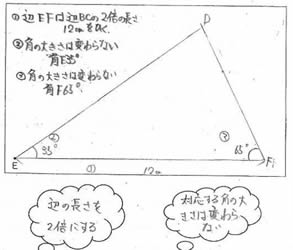 ① 辺EFは辺BCの2倍の長さ
12cmをかく。
② 角の大きさは変わらない
角E35°
③ 角の大きさは変わらない
角F65°
D
②
③
35°
65°
E
F
①
12cm
辺の長さを
2倍にする
対応する角の大
きさは変わら
ない